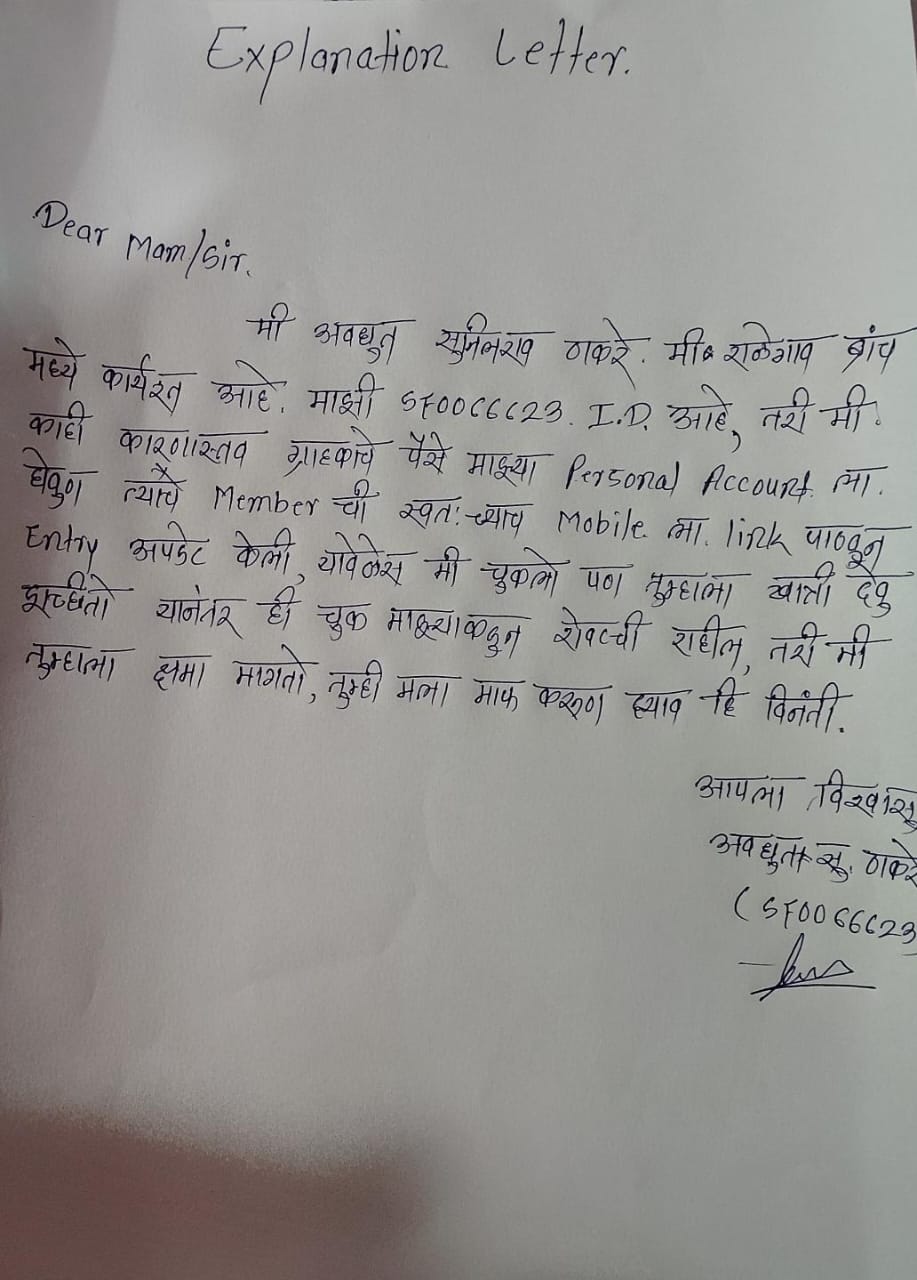 Explanation Letter.
Dear Mam/Sir.
मी अवधुत सुनिलराव ठाकरे. मी राळेगाव ब्रांच
मध्ये कार्यरत आहे. माझी SF0066623. I.D. आहे, तरी मी.
काही कारणास्तव ग्राहकाचे पैसे माझ्या Personal Account ला.
घेवुण त्याचे Member ची स्वतःच्याच Mobile ला. link पाठवून
Entry अपडेट केली, यावेळेस मी चुकलो पण तुम्हाला खात्री देवु
इच्छीतो यानंतर ही चुक माझ्याकडुन शेवटची राहील, तरी मी
तुम्हाला क्षमा मागतो, तुम्ही मला माफ करूण द्याव हि विनंती.
आपला विश्वासु
अवधुत सु. ठाकरे
(SF0066623